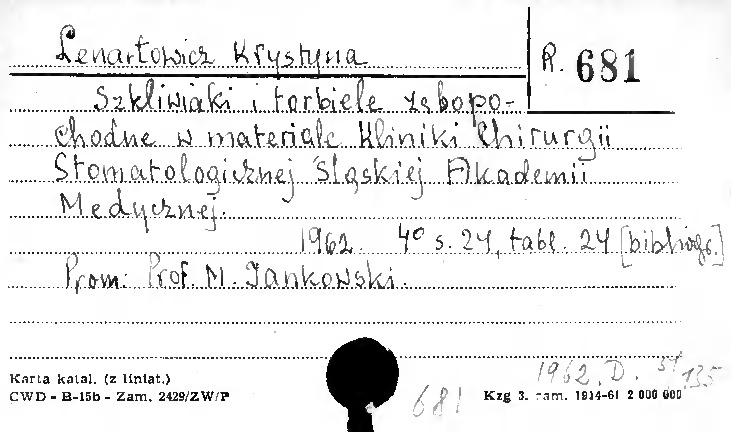 Lenartowicz Krystyna
R. 681
Szkliwiaki i torbiele zębopo-
chodne w materiale Kliniki Chirurgii
Stomatologicznej Śląskiej Akademii
Medycznej.
1962. 4° s. 24, tabl. 24 [bibliogr.]
Prom: Prof. M. Jankowski.
Karta katal. (z liniat.)
CWD - B-15b - Zam. 2429/ZW/P
681
1962. D. 51/135
Kzg 3. zam. 1914-61 2 000 000